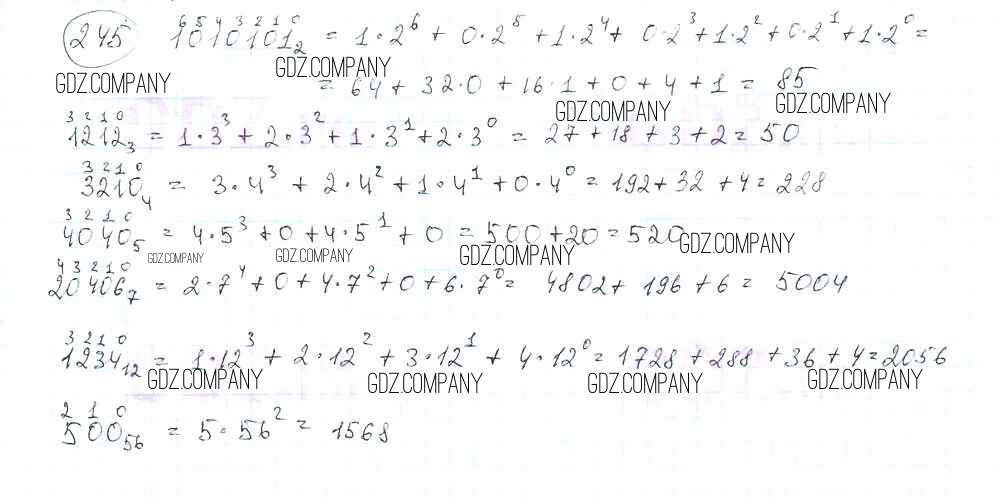 245 1010101₂ = 1·2⁶ + 0·2⁵ + 1·2⁴ + 0·2³ + 1·2² + 0·2¹ + 1·2⁰ =
6 5 4 3 2 1 0
GDZ.COMPANY GDZ.COMPANY
= 64 + 32·0 + 16·1 + 0 + 4 + 1 = 85
GDZ.COMPANY GDZ.COMPANY
3 2 1 0
1212₃ = 1·3³ + 2·3² + 1·3¹ + 2·3⁰ = 27 + 18 + 3 + 2 = 50
3 2 1 0
3210₄ = 3·4³ + 2·4² + 1·4¹ + 0·4⁰ = 192 + 32 + 4 = 228
3 2 1 0
4040₅ = 4·5³ + 0 + 4·5¹ + 0 = 500 + 20 = 520
GDZ.COMPANY GDZ.COMPANY GDZ.COMPANY GDZ.COMPANY
4 3 2 1 0
20406₇ = 2·7⁴ + 0 + 4·7² + 0 + 6·7⁰ = 4802 + 196 + 6 = 5004
3 2 1 0
1234₁₂ = 1·12³ + 2·12² + 3·12¹ + 4·12⁰ = 1728 + 288 + 36 + 4 = 2056
GDZ.COMPANY GDZ.COMPANY GDZ.COMPANY GDZ.COMPANY
2 1 0
500₅₆ = 5·56² = 1568